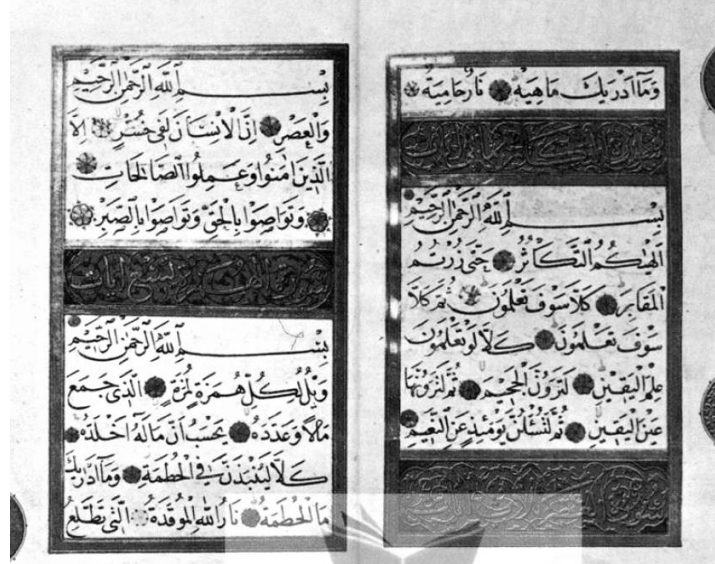 وَمَآ اَدْرٰيكَ مَاهِيَهْ نَارٌ حَامِيَةٌ
سورة التكاثر ثماني ايات
بِسْمِ اللّٰهِ الرَّحْمٰنِ الرَّحِيْمِ
اَلْهٰيكُمُ التَّكَاثُرُ حَتّٰى زُرْتُمُ
الْمَقَابِرَ كَلَّا سَوْفَ تَعْلَمُونَ ثُمَّ كَلَّا
سَوْفَ تَعْلَمُونَ كَلَّا لَوْ تَعْلَمُونَ
عِلْمَ الْيَقِينِ لَتَرَوُنَّ الْجَحِيمَ ثُمَّ لَتَرَوُنَّهَا
عَيْنَ الْيَقِينِ ثُمَّ لَتُسْئَلُنَّ يَوْمَئِذٍ عَنِ النَّعِيمِ
سورة العصر ثلاث ايات
بِسْمِ اللّٰهِ الرَّحْمٰنِ الرَّحِيْمِ
وَالْعَصْرِ اِنَّ الْاِنْسَانَ لَفِى خُسْرٍ اِلَّا
الَّذِينَ اٰمَنُوا وَعَمِلُوا الصَّالِحَاتِ
وَتَوَاصَوْا بِالْحَقِّ وَتَوَاصَوْا بِالصَّبْرِ
سورة الهمزة تسع ايات
بِسْمِ اللّٰهِ الرَّحْمٰنِ الرَّحِيْمِ
وَيْلٌ لِكُلِّ هُمَزَةٍ لُمَزَةٍ اَلَّذِى جَمَعَ
مَالًا وَعَدَّدَهُ يَحْسَبُ اَنَّ مَالَهُ اَخْلَدَهُ
كَلَّا لَيُنْبَذَنَّ فِى الْحُطَمَةِ وَمَآ اَدْرٰيكَ
مَا الْحُطَمَةُ نَارُ اللّٰهِ الْمُوقَدَةُ الَّتِى تَطَّلِعُ